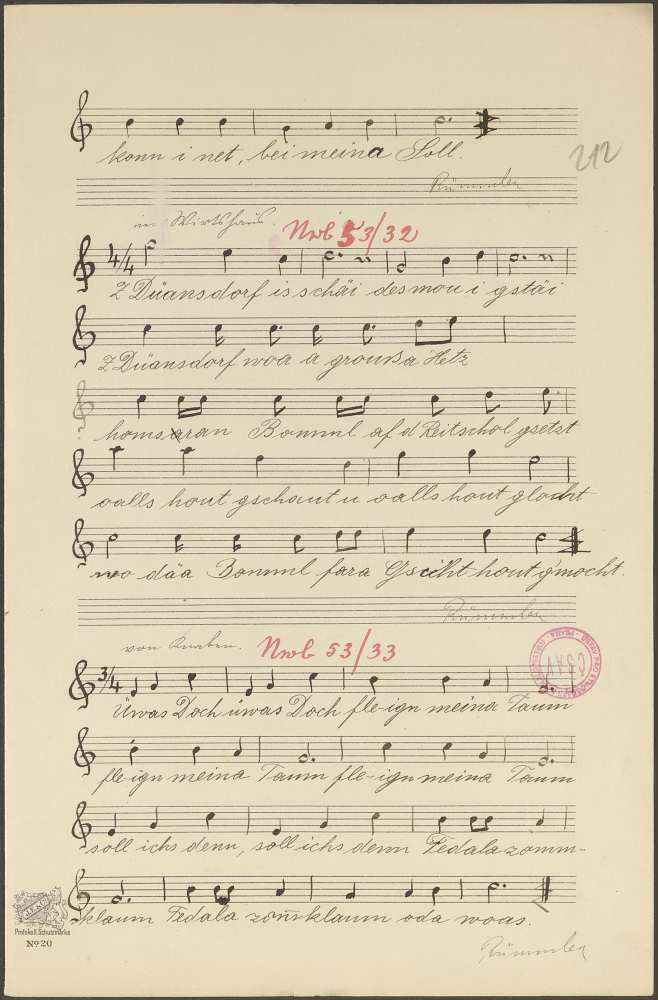 konn i net, bei meina Soll.
212
Rümmler
im Wirtshaus.
Nwb 53/32
4/4
Z Düansdorf is schäi des mou i gstäi
Z Düansdorf woa a groußa Hetz
homs aran Bomml af d Reitschol gsetzt
oalls hout gschaut u oalls hout glocht
wo däa Bomml fara Gsicht hout g'mocht.
Rümmler
von Knaben.
Nwb 53/33
3/4
Üwas Doch üwas Doch fle-ign meina Taum
fle-ign meina Taum fle-ign meina Taum
soll ichs denn, soll ichs denn Fedala zomm-
klaum Fedala zom̄klaum oda woas.
Protokoll. Schutzmarke
No 20
Rümmler